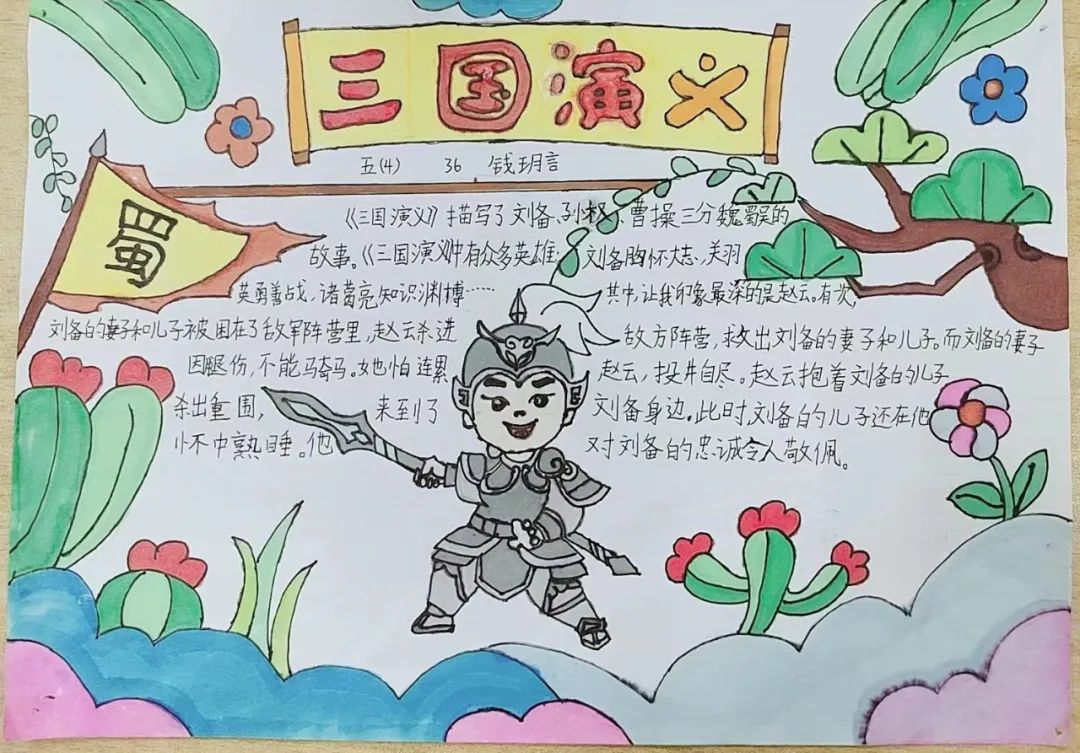 三国演义
五(4) 36 钱玥言
蜀
《三国演义》描写了刘备、孙权、曹操三分魏蜀吴的
故事。《三国演义》中有众多英雄:刘备胸怀大志,关羽
英勇善战,诸葛亮知识渊博……其中,让我印象最深的是赵云。有次,
刘备的妻子和儿子被困在了敌军阵营里,赵云杀进敌方阵营,救出刘备的妻子和儿子。而刘备的妻子
因腿伤,不能马骑马。她怕连累赵云,投井自尽。赵云抱着刘备的儿子
杀出重围,来到了刘备身边。此时刘备的儿子还在他
怀中熟睡。他对刘备的忠诚令人敬佩。